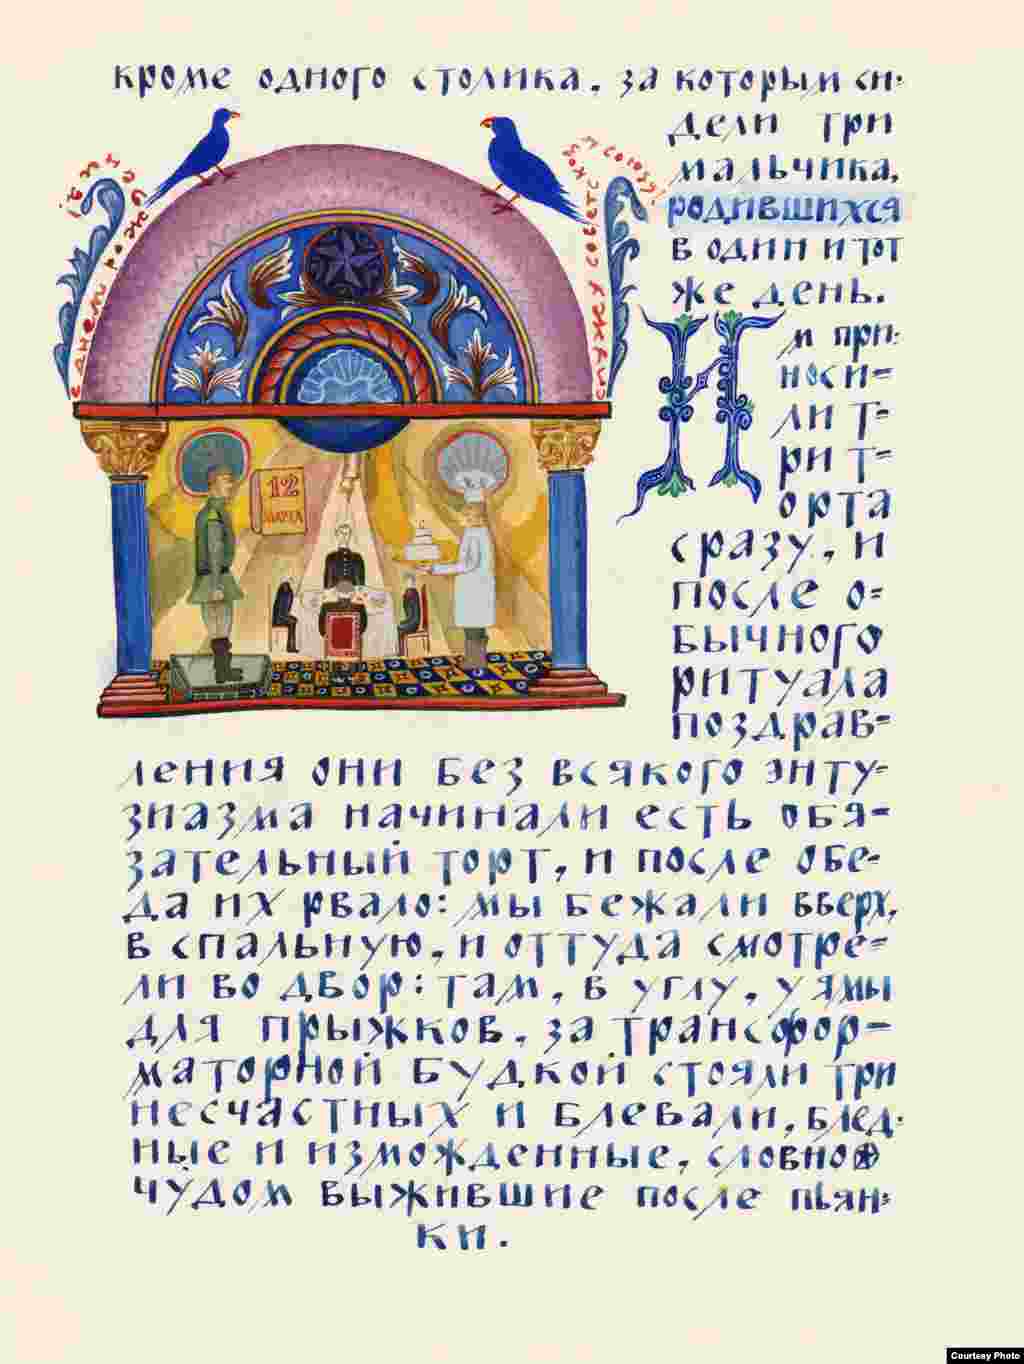 кроме одного столика, за которым си-
дели три
мальчика,
родившихся
в один и тот
же день.
Им при-
носи-
ли т-
ри т-
орта
сразу, и
после о-
бычного
ритуала
поздрав-
ления они без всякого энту-
зиазма начинали есть обя-
зательный торт, и после обе-
да их рвало: мы бежали вверх,
в спальную, и оттуда смотре-
ли во двор: там, в углу, у ямы
для прыжков, за трансфор-
маторной будкой стояли три
несчастных и блевали, блед-
ные и изможденные, словно
чудом выжившие после пьян-
ки.
с днём рождения
служу советскому союзу!
12
марта
Courtesy Photo